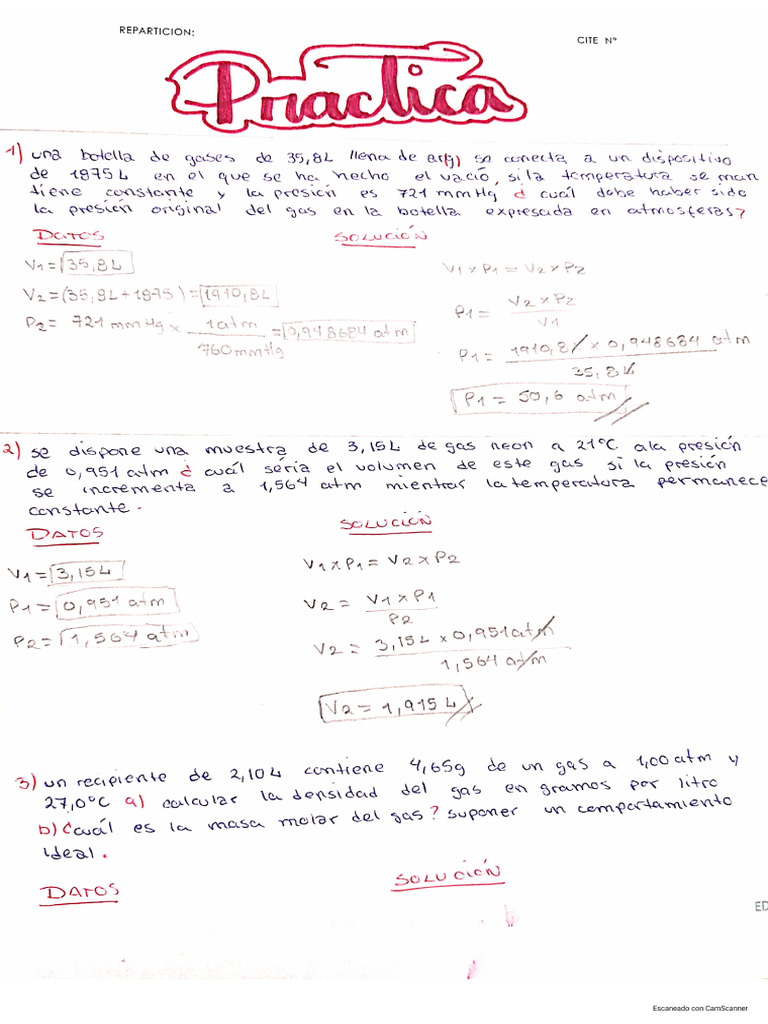 REPARTICION:
CITE Nº
Practica
1) una botella de gases de 35,8L llena de ar(g) se conecta a un dispositivo
de 1875L en el que se ha hecho el vació, si la temperatura se man
tiene constante y la presión es 721 mmHg ¿ cuál debe haber sido
la presión original del gas en la botella expresada en atmosferas?
DATOS
SOLUCIÓN
V1=35,8L
V2=(35,8L+1875)=1910,8L
P2= 721 mmHg x 1atm / 760mmHg =0,948684 atm
V1xP1=V2xP2
P1= V2xP2 / V1
P1= 1910,8L x 0,948684 atm / 35,8L
P1= 50,6 atm
2) se dispone una muestra de 3,15L de gas neon a 21ºC ala presión
de 0,951 atm ¿ cuál sería el volumen de este gas si la presión
se incrementa a 1,564 atm mientrar la temperatura permanece
constante.
DATOS
SOLUCIÓN
V1=3,15L
P1=0,951 atm
P2=1,564 atm
V1xP1=V2xP2
V2= V1xP1 / P2
V2= 3,15L x 0,951atm / 1,564 atm
V2= 1,915L
3) un recipiente de 2,10L contiene 4,65g de un gas a 1,00atm y
27,0ºC a) calcular la densidad del gas en gramos por litro
b) ¿cuál es la masa molar del gas? suponer un comportamiento
ideal.
DATOS
SOLUCIÓN
ED
Escaneado con CamScanner